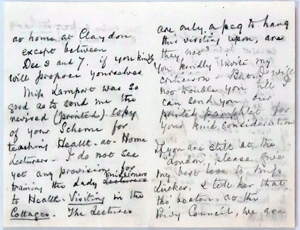 at home at Claydon,
except between
Dec 3 and 7. if you kindly
will propose yourselves
Miss Lampert was so
good as to send me the
revised (printed) copy
of your Scheme for
teaching Health-at-Home
Lecturers. I do not see
yet any provision for
training the Lady missioners
to Health-Visiting in the
Cottages. The Lecturer
are only a peg to hang
this visiting upon, are
they not?
You kindly invite my
criticism
not trouble you till
can send you our
printed
your kind consideration
If you are still at the
London, please give
my best love to Miss
Lücker. I tell her that
the "doctors" at the
Privy Council, we are